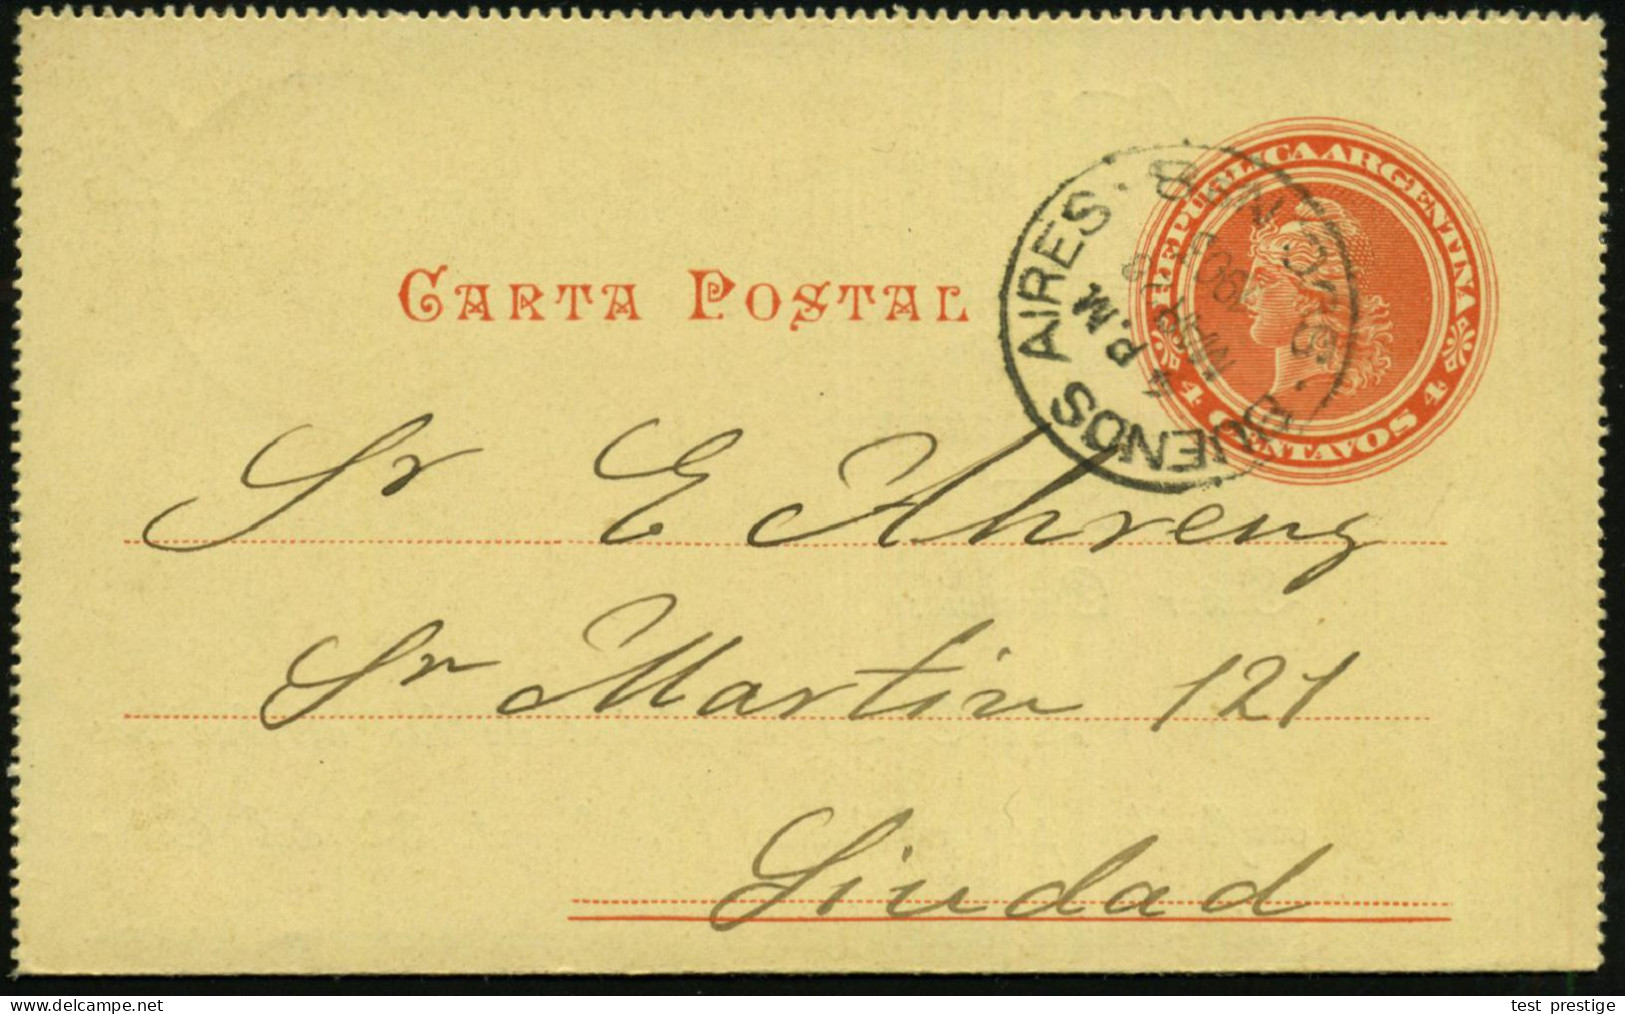 REPUBLICA ARGENTINA
4 CENTAVOS 4
BUENOS AIRES
4 P.M
CARTA POSTAL
Sr E Ahrens
Sn Martin 121
Ciudad
www.delcampe.net
test_prestige